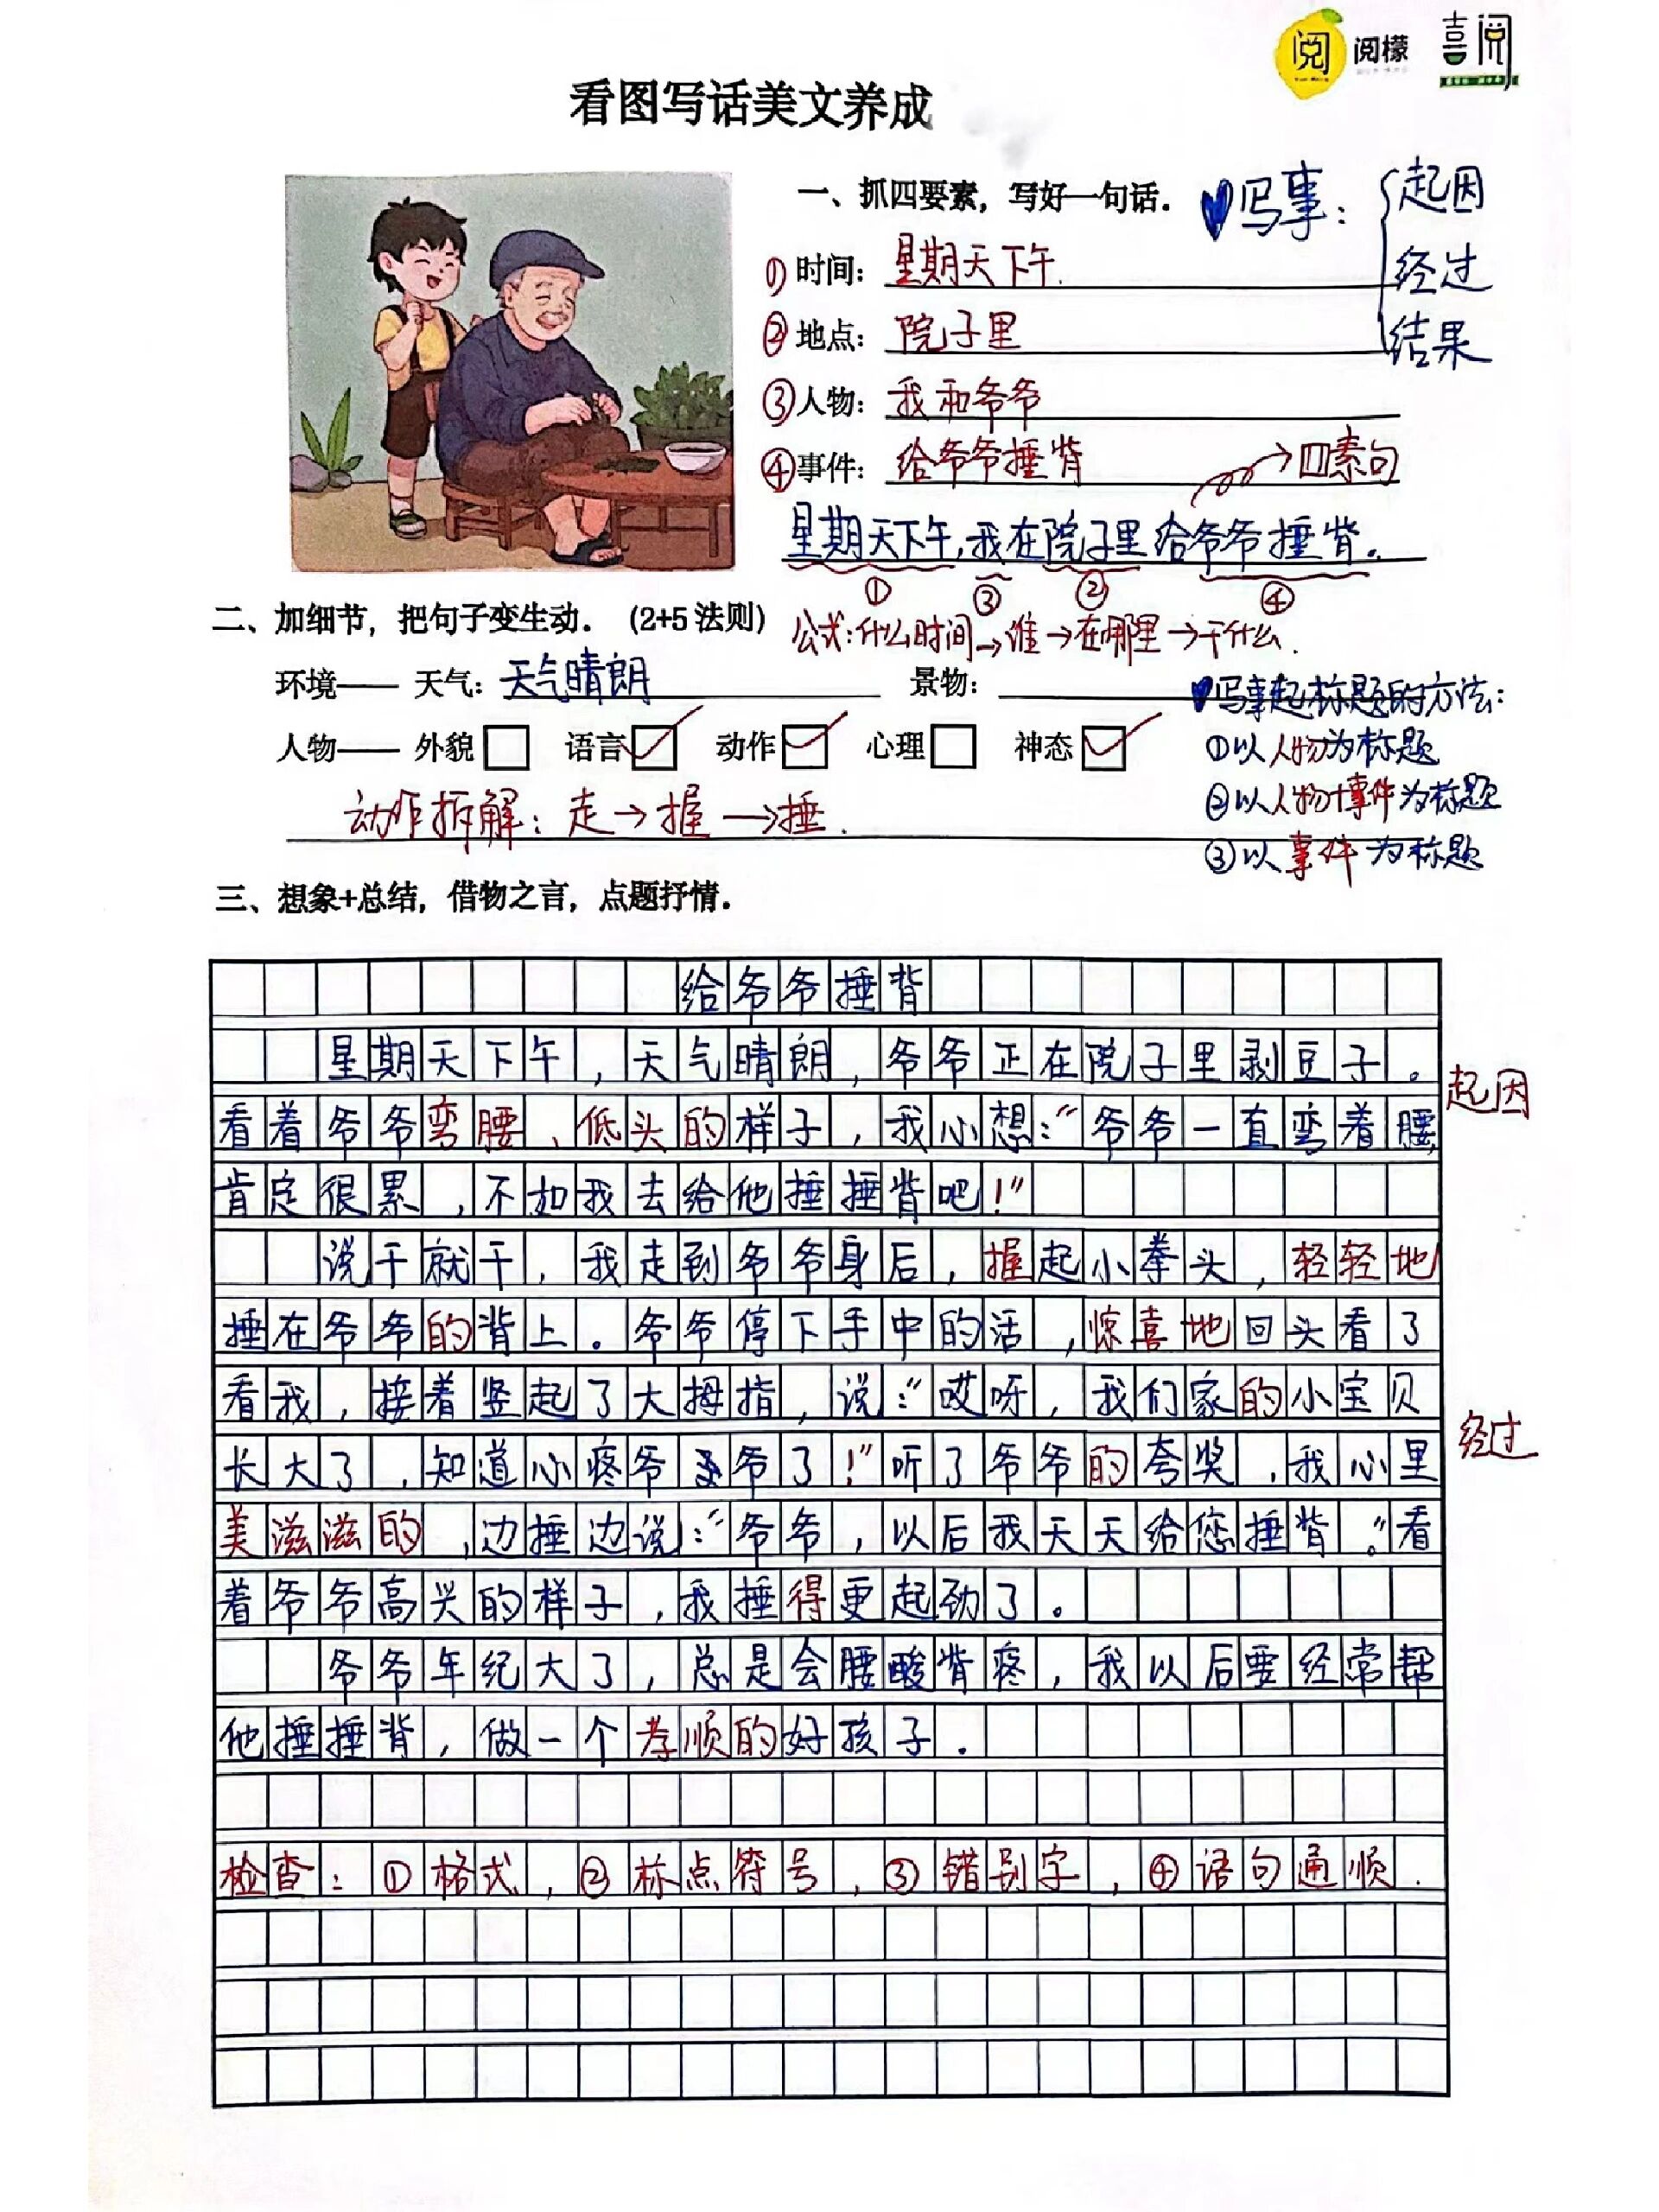 阅 阅檬 喜阅
看图写话美文养成
一、抓四要素，写好一句话．
♥写事：起因
经过
结果
①时间：星期天下午．
②地点：院子里
③人物：我和爷爷
④事件：给爷爷捶背
→四素句
星期天下午，我在院子里给爷爷捶背．
① ③ ② ④
二、加细节，把句子变生动．（2+5 法则）
公式：什么时间→谁→在哪里→干什么．
环境—— 天气：天气晴朗 景物：
♥写事起标题的方法：
人物—— 外貌 语言✓ 动作✓ 心理 神态✓
①以人物为标题
②以人物+事件为标题
③以事件为标题
动作拆解：走→握→捶．
三、想象+总结，借物之言，点题抒情．
给爷爷捶背
星期天下午，天气晴朗，爷爷正在院子里剥豆子。
起因
看着爷爷弯腰、低头的样子，我心想：“爷爷一直弯着腰，
肯定很累，不如我去给他捶捶背吧！”
说干就干，我走到爷爷身后，握起小拳头，轻轻地
捶在爷爷的背上。爷爷停下手中的活，惊喜地回头看了
看我，接着竖起了大拇指，说：“哎呀，我们家的小宝贝
经过
长大了，知道心疼爷爷了！”听了爷爷的夸奖，我心里
美滋滋的，边捶边说：“爷爷，以后我天天给您捶背。”看
着爷爷高兴的样子，我捶得更起劲了。
爷爷年纪大了，总是会腰酸背疼，我以后要经常帮
他捶捶背，做一个孝顺的好孩子．
检查：①格式，②标点符号，③错别字，④语句通顺．